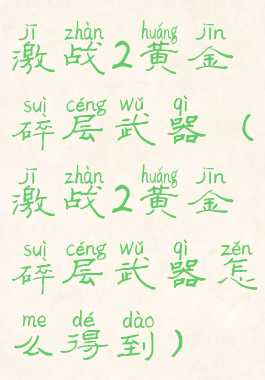 jī zhàn huáng jīn
激战2黄金
suì céng wǔ qì
碎层武器（
jī zhàn huáng jīn
激战2黄金
suì céng wǔ qì zěn
碎层武器怎
me dé dào
么得到）